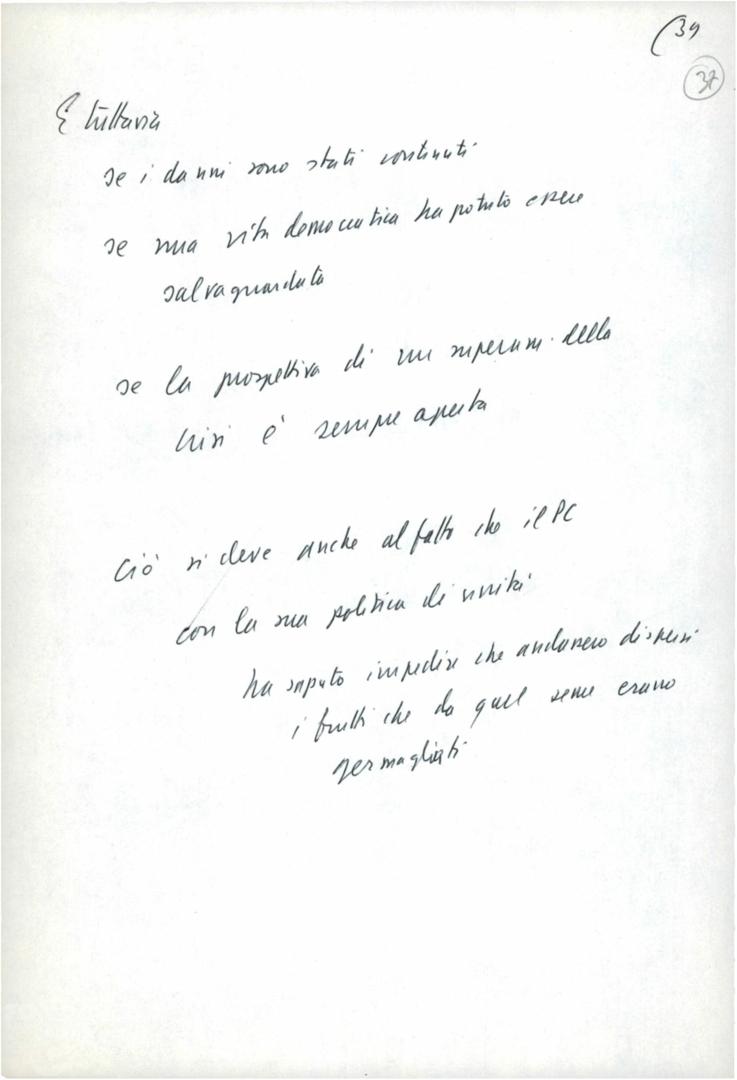 (39
37
E tuttavia
se i danni sono stati contenuti
se una vita democratica ha potuto essere
salvaguardata
se la prospettiva di un superam. della
crisi è sempre aperta
Ciò si deve anche al fatto che il PC
con la sua politica di unità
ha saputo impedire che andassero dispersi
i frutti che da quel seme erano
germogliati